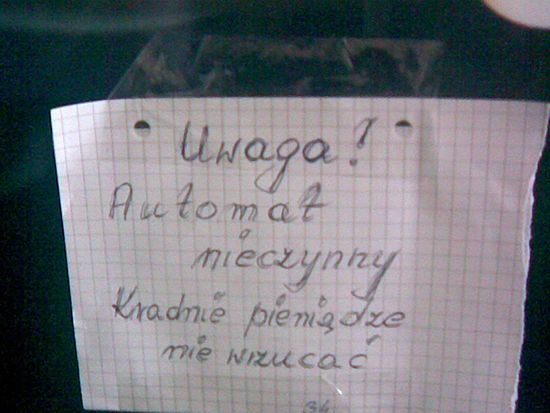 Uwaga!
Automat
nieczynny
Kradnie pieniądze
nie wrzucać